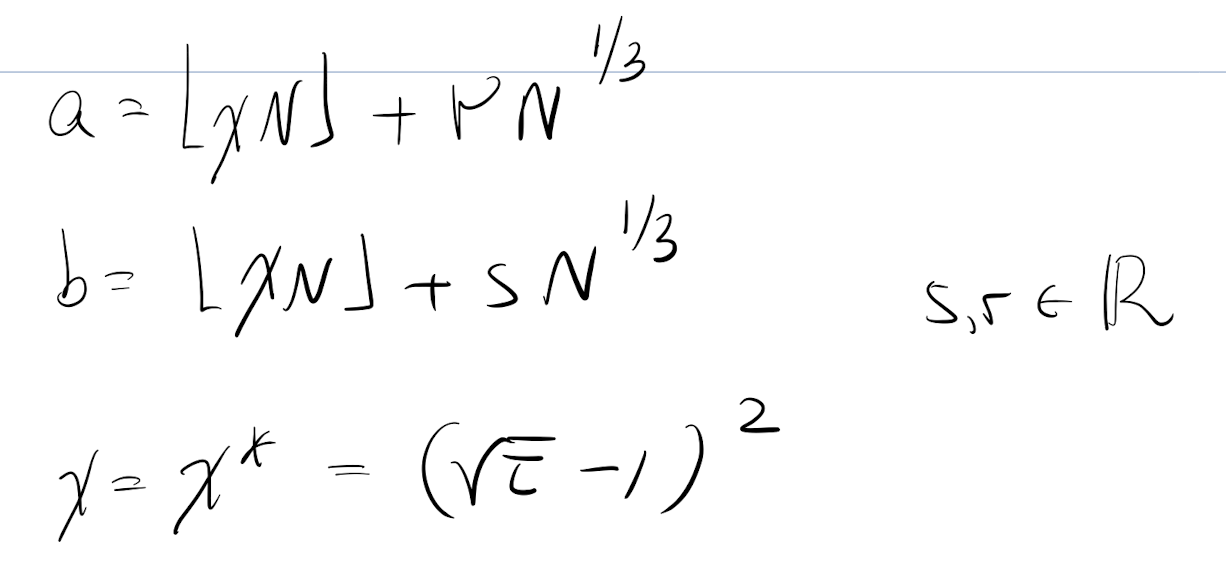 a = ⌊χN⌋ + rN^{1/3}
b = ⌊χN⌋ + sN^{1/3}
s, r ∈ ℝ
χ = χ* = (√τ - 1)^2